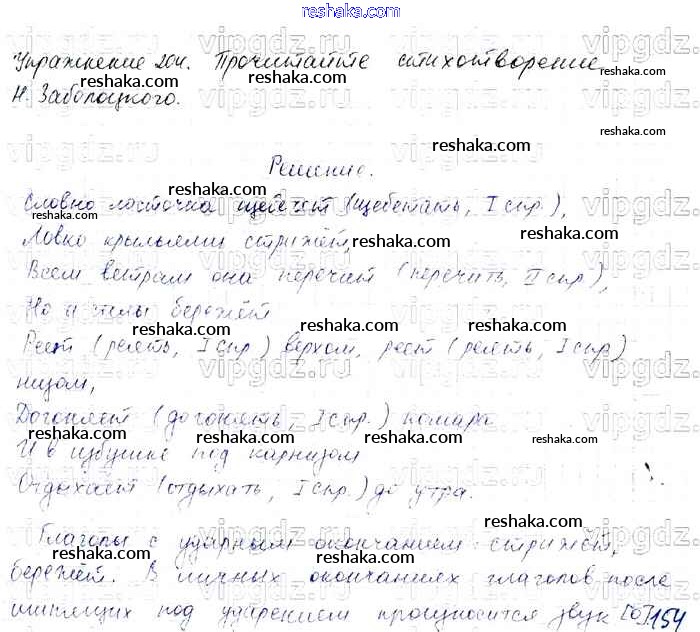 reshaka.com
Упражнение 204. Прочитайте стихотворение
Н. Заболоцкого.
Решение.
Словно ласточка щебечет (щебетать, I спр.),
Ловко крыльями стрижёт,
Всем ветрам она перечит (перечить, II спр.),
Но и силы бережёт
Реет (реять, I спр.) верхом, реет (реять, I спр)
низом,
Догоняет (догонять, I спр.) комара
И в избушке под карнизом
Отдыхает (отдыхать, I спр.) до утра.
Глаголы с ударным окончанием стрижёт,
бережёт. В личных окончаниях глаголов после
шипящих под ударением произносится звук [о] 154